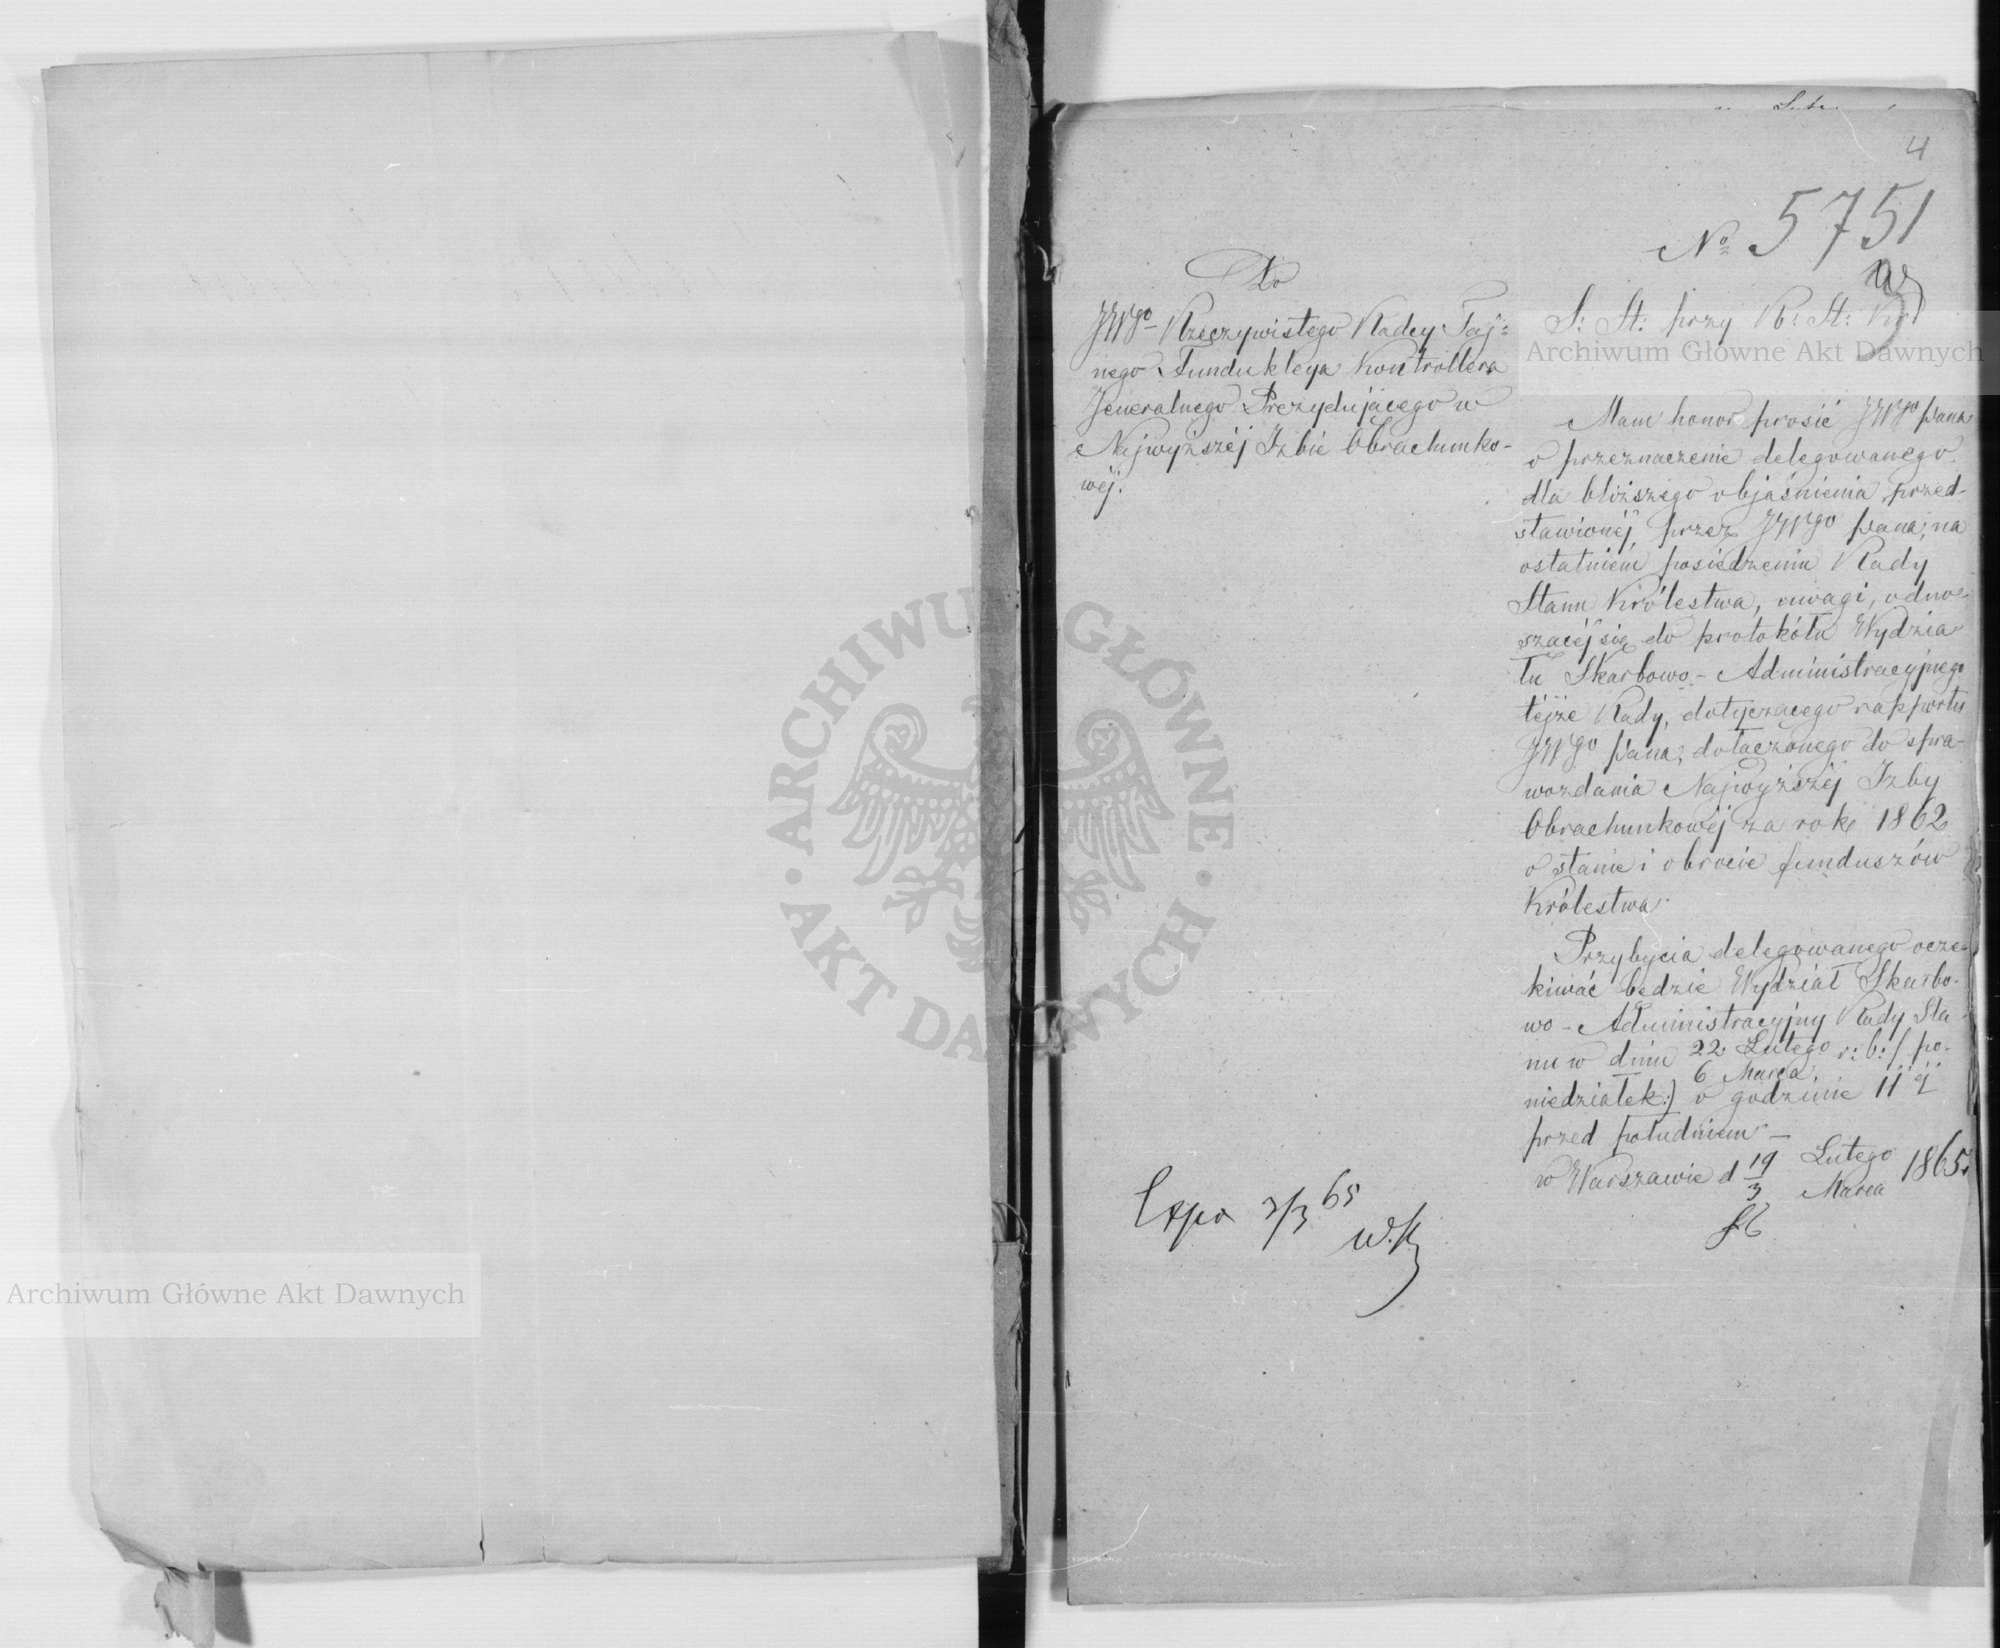 4
No 5751
Do
JWgo Rzeczywistego Radcy Taj=
nego Fundukleya Kontrollera
Jeneralnego Prezydującego w
Najwyższéj Izbie Obrachunko-
wéj.
S: St: przy R: St: Kr:
Archiwum Główne Akt Dawnych
Mam honor prosić JWgo Pana
o przeznaczenie delegowanego
dla bliższego objaśnienia przed-
stawionéj przez JWgo Pana, na
ostatniém posiedzeniu Rady
Stanu Królestwa, uwagi, odno-
szącéj się do protokółu Wydzia
łu Skarbowo-Administracyjnego
téjże Rady, dotyczącego rapportu
JWgo Pana, dołączonego do spra-
wozdania Najwyższéj Izby
Obrachunkowéj za rok 1862
o stanie i obrocie funduszów
Królestwa.
Przybycia delegowanego ocze-
kiwać będzie Wydział Skarbo-
wo-Administracyjny Rady Sta-
nu w dniu 22 Lutego r: b: (po-
6 Marca
niedziałek:) o godzinie 11éj
przed południem —
w Warszawie d 19 Lutego 1865.
3 Marca
Expo 3/3 65
W.K
ARCHIWUM GŁÓWNE
AKT DAWNYCH
Archiwum Główne Akt Dawnych